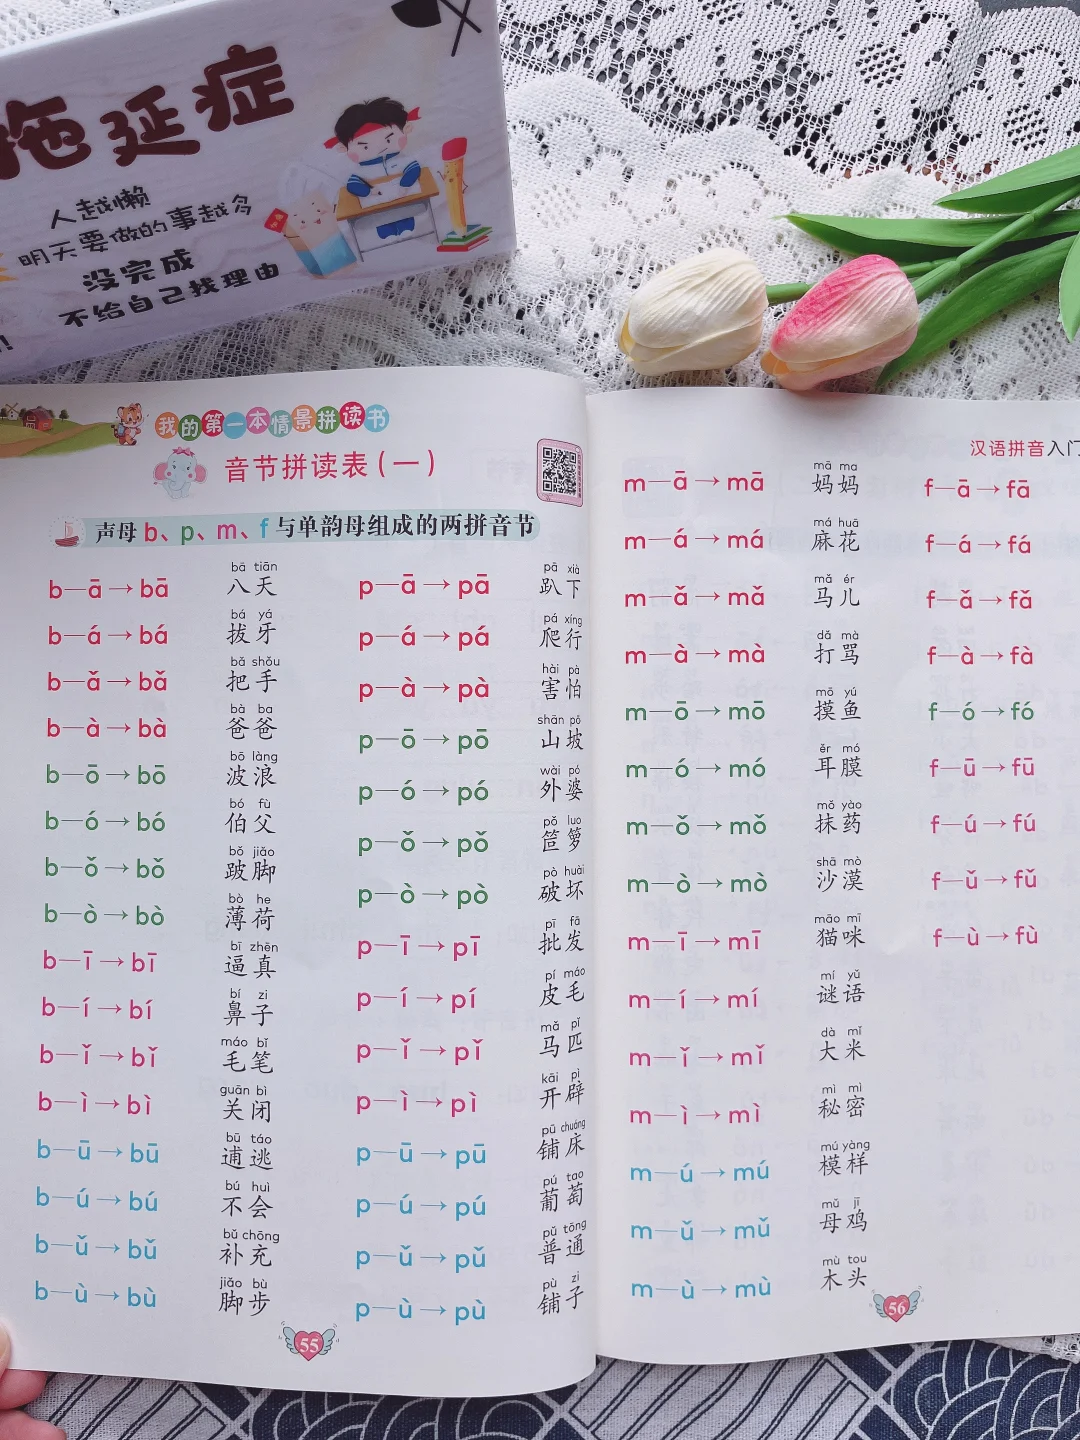 拖延症
人越懒
明天要做的事越多
没完成
不给自己找理由
我的第一本情景拼读书
音节拼读表（一）
声母 b、p、m、f 与单韵母组成的两拼音节
b—ā→bā bā tiān 八天
b—á→bá bá yá 拔牙
b—ǎ→bǎ bǎ shǒu 把手
b—à→bà bà ba 爸爸
b—ō→bō bō làng 波浪
b—ó→bó bó fù 伯父
b—ǒ→bǒ bǒ jiǎo 跛脚
b—ò→bò bò he 薄荷
b—ī→bī bī zhēn 逼真
b—í→bí bí zi 鼻子
b—ǐ→bǐ máo bǐ 毛笔
b—ì→bì guān bì 关闭
b—ū→bū bū táo 逋逃
b—ú→bú bú huì 不会
b—ǔ→bǔ bǔ chōng 补充
b—ù→bù jiǎo bù 脚步
p—ā→pā pā xià 趴下
p—á→pá pá xíng 爬行
p—à→pà hài pà 害怕
p—ō→pō shān pō 山坡
p—ó→pó wài pó 外婆
p—ǒ→pǒ pǒ luo 笸箩
p—ò→pò pò huài 破坏
p—ī→pī pī fā 批发
p—í→pí pí máo 皮毛
p—ǐ→pǐ mǎ pǐ 马匹
p—ì→pì kāi pì 开辟
p—ū→pū pū chuáng 铺床
p—ú→pú pú tao 葡萄
p—ǔ→pǔ pǔ tōng 普通
p—ù→pù pù zi 铺子
55
汉语拼音入门
m—ā→mā mā ma 妈妈
m—á→má má huā 麻花
m—ǎ→mǎ mǎ ér 马儿
m—à→mà dǎ mà 打骂
m—ō→mō mō yú 摸鱼
m—ó→mó ěr mó 耳膜
m—ǒ→mǒ mǒ yào 抹药
m—ò→mò shā mò 沙漠
m—ī→mī māo mī 猫咪
m—í→mí mí yǔ 谜语
m—ǐ→mǐ dà mǐ 大米
m—ì→mì mì mì 秘密
m—ú→mú mú yàng 模样
m—ǔ→mǔ mǔ jī 母鸡
m—ù→mù mù tou 木头
f—ā→fā
f—á→fá
f—ǎ→fǎ
f—à→fà
f—ó→fó
f—ū→fū
f—ú→fú
f—ǔ→fǔ
f—ù→fù
56